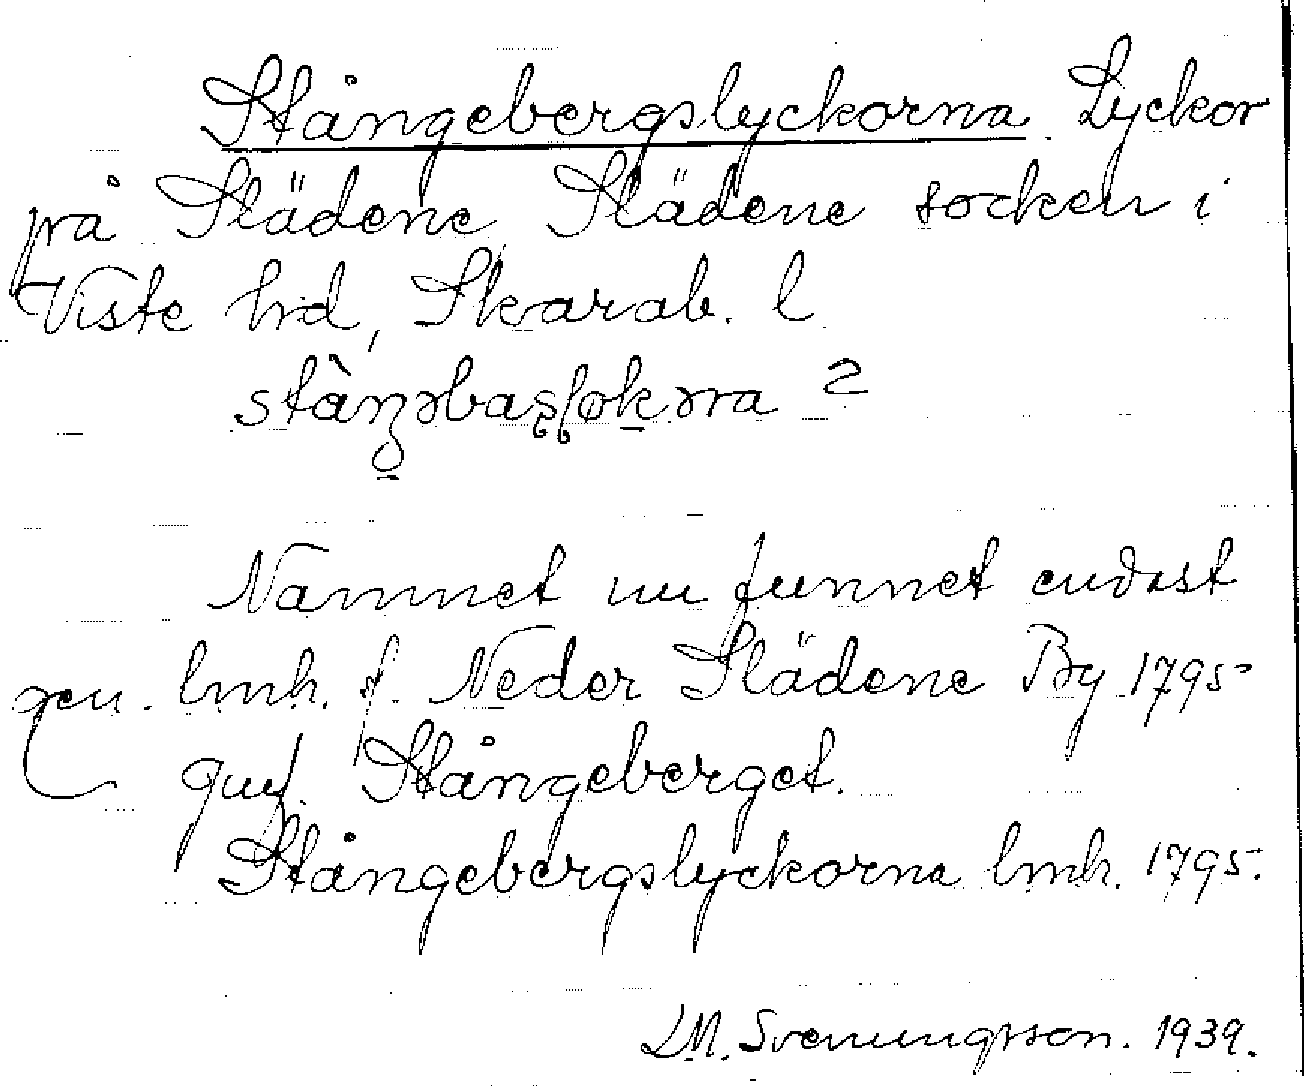 Stångebergslyckorna. Lyckor
på Slädene, Slädene socken i
Viste hd, Skarab. l
Namnet nu funnet endast
gen. lmh. f. Neder Slädene By 1795
Stångeberget.
Stångebergslyckorna lmh. 1795.
L.M. Svenungsson. 1939.